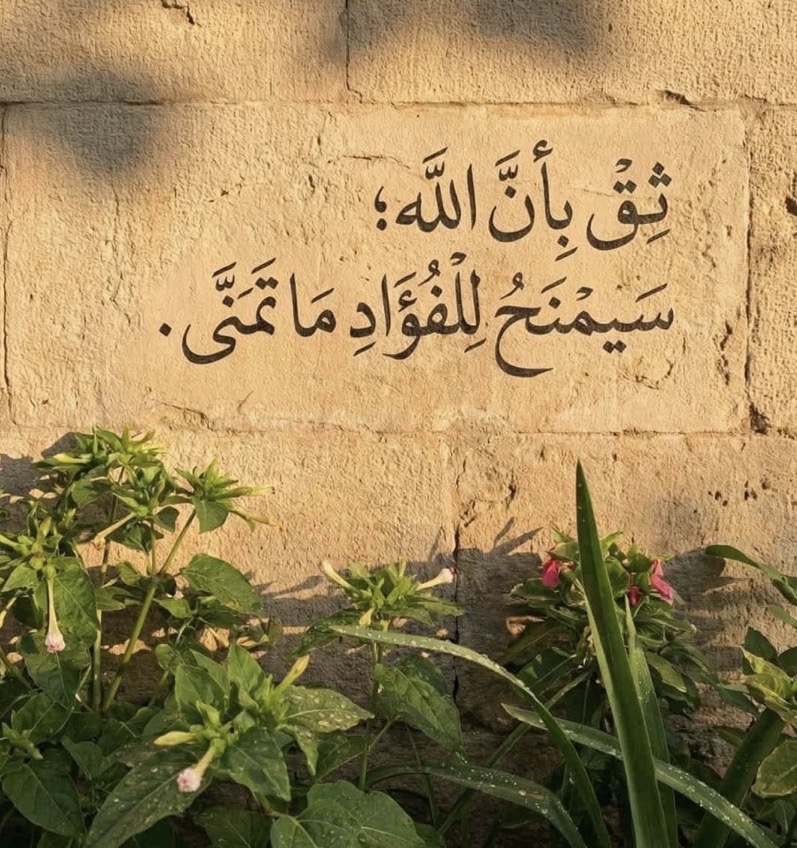 ثِقْ بِأَنَّ اللَّه؛
سَيمْنَحُ لِلْفُؤَادِ مَا تَمَنَّى.